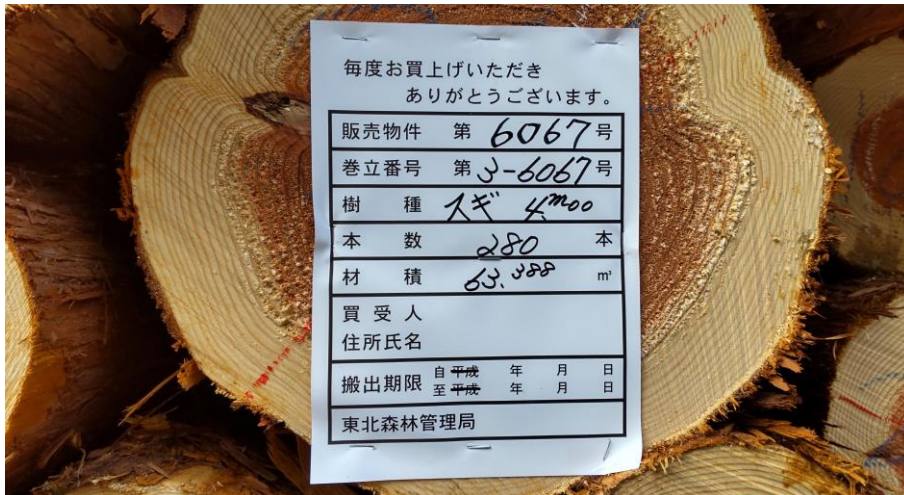 毎度お買上げいただき
ありがとうございます。
販売物件 第 6067 号
巻立番号 第 3-6067 号
樹種 スギ 4.m00
本数 280 本
材積 63.388 m³
買受人
住所氏名
搬出期限 自 平成 年 月 日
至 平成 年 月 日
東北森林管理局